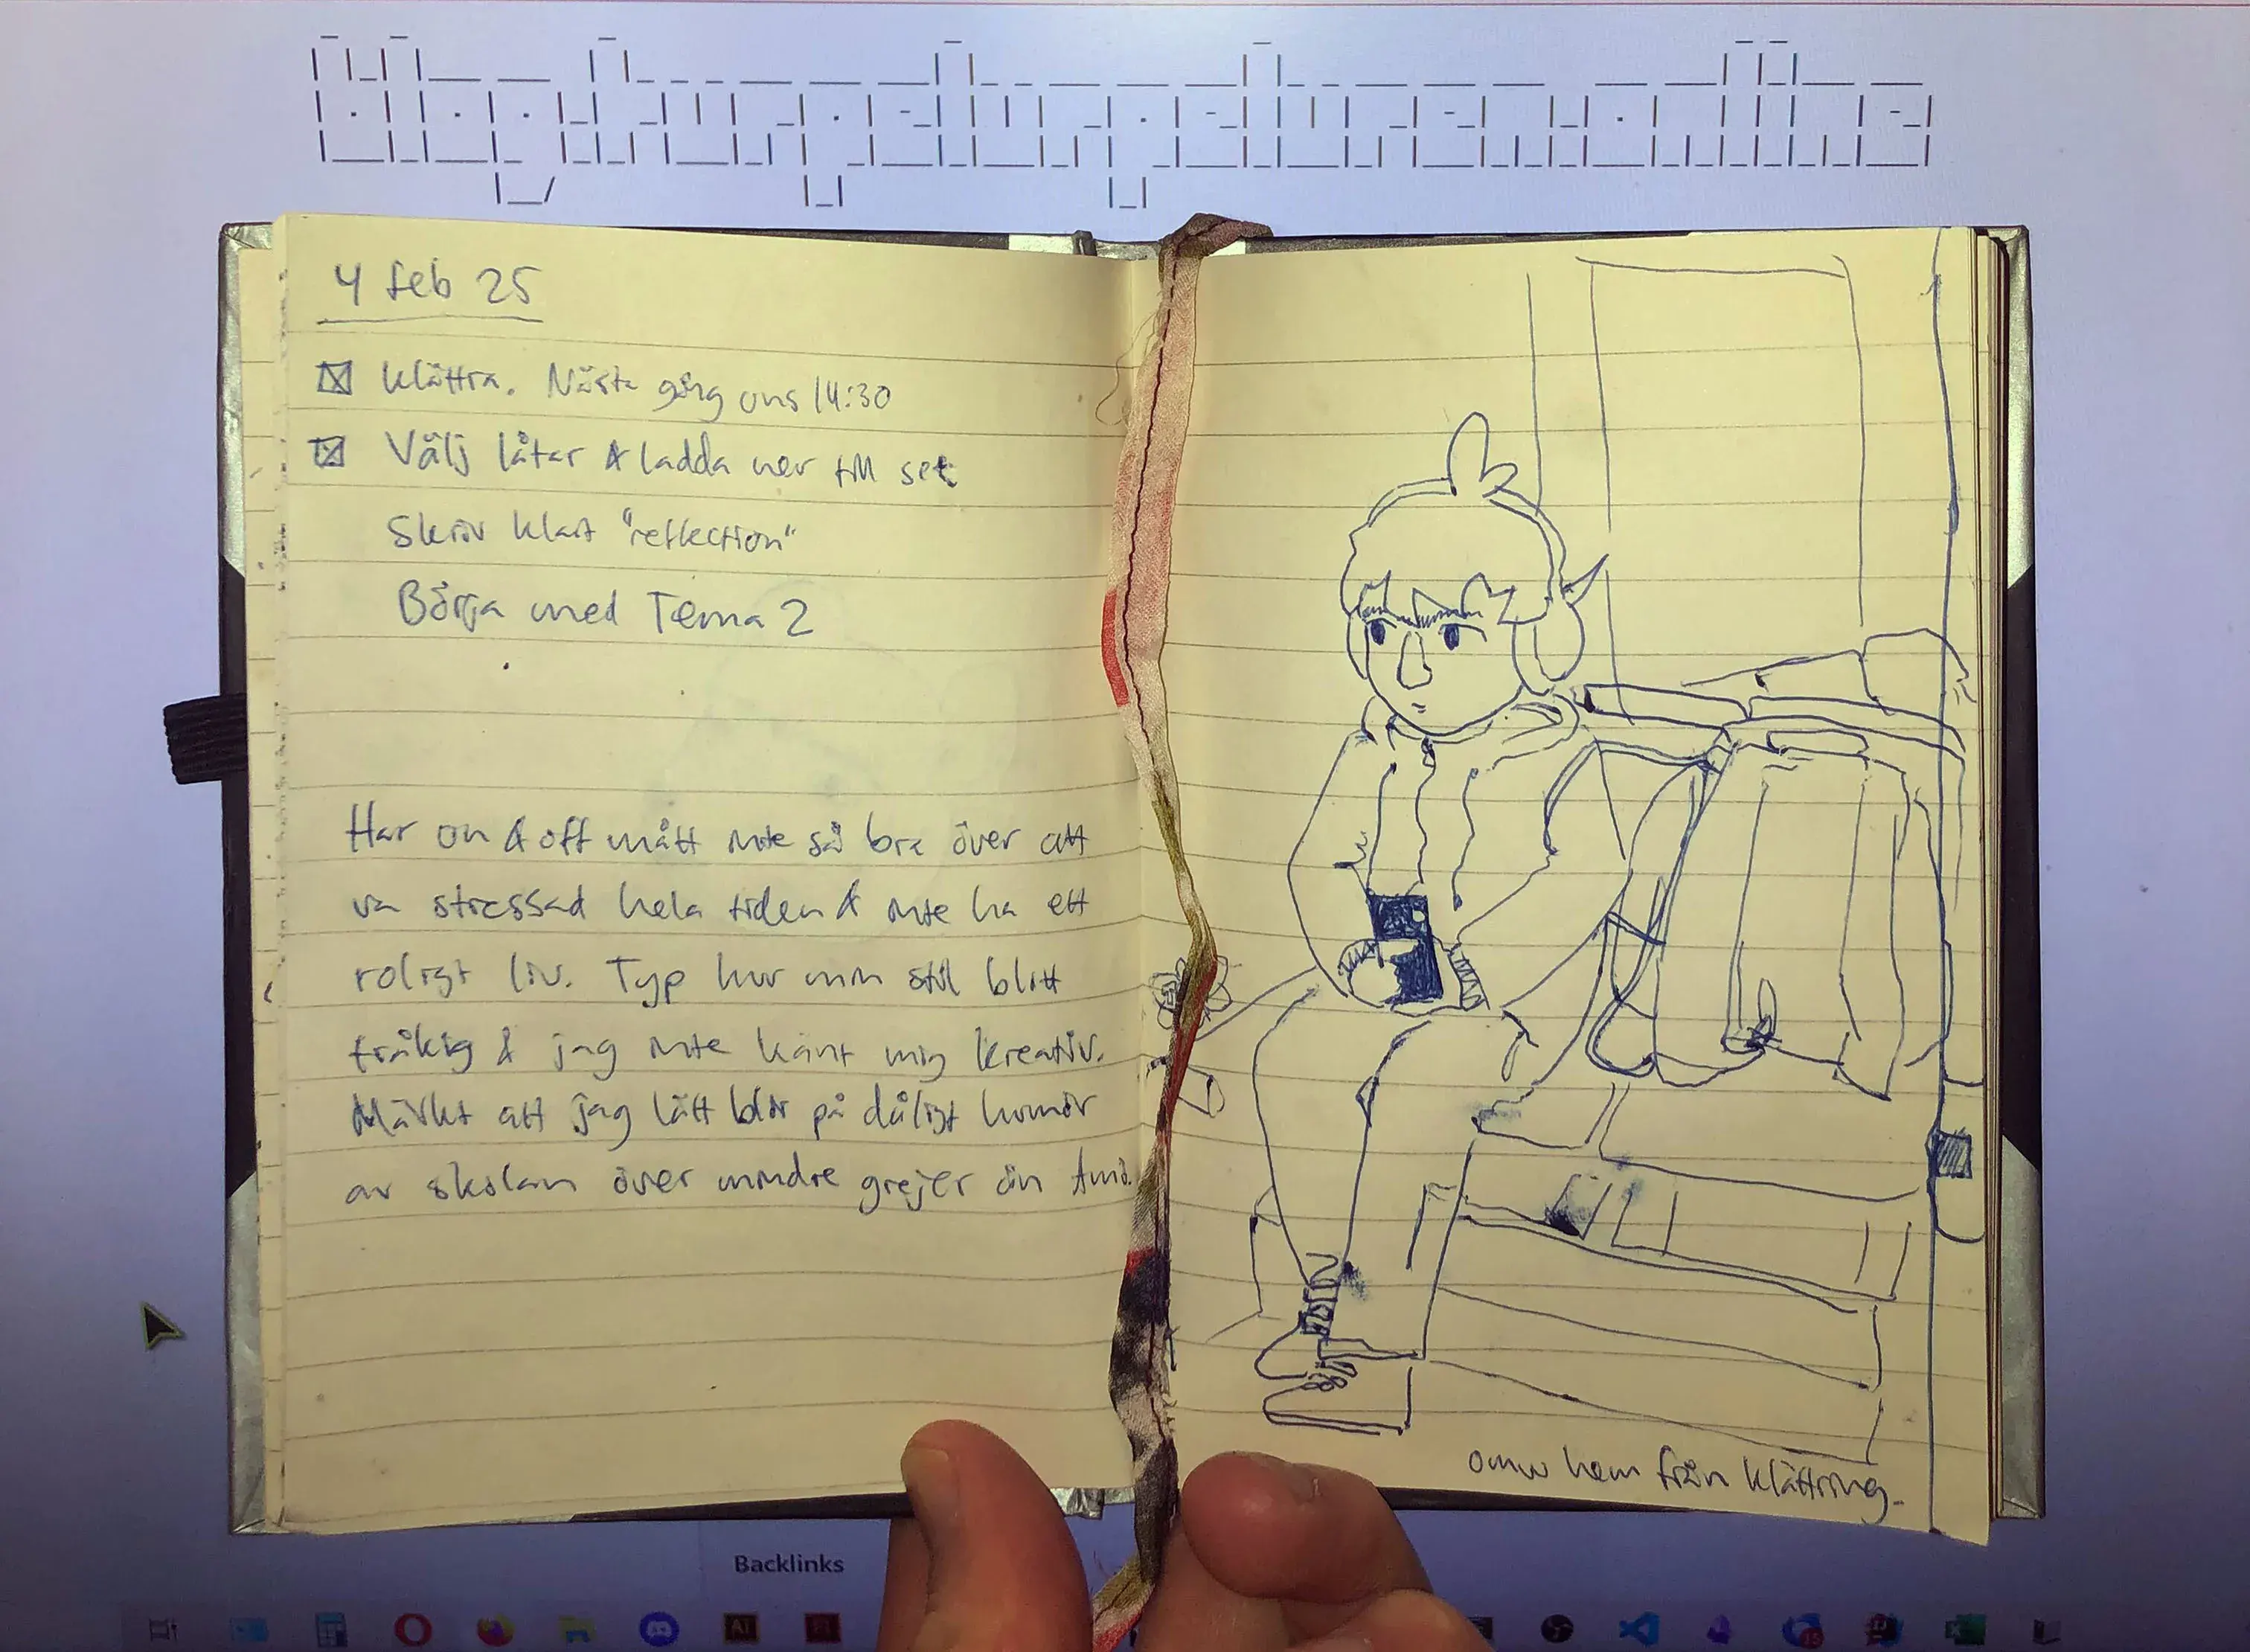 blog.hurpedurpeduren.online
4 feb 25
Klättra. Nästa gång ons 14:30
Välj låtar & ladda ner till set
Skriv klart "reflection"
Börja med Tema 2
Har on & off mått inte så bra över att
va stressad hela tiden & inte ha ett
roligt liv. Typ hur min stil blitt
tråkig & jag inte känt mig kreativ.
Märkt att jag lätt blir på dåligt humör
av skolan över mindre grejer än
omw hem från klättring.
Backlinks
Ai